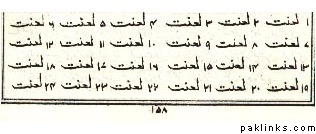 ۱ لعنت ۲ لعنت ۳ لعنت ۴ لعنت ۵ لعنت ۶ لعنت
۷ لعنت ۸ لعنت ۹ لعنت ۱۰ لعنت ۱۱ لعنت ۱۲ لعنت
۱۳ لعنت ۱۴ لعنت ۱۵ لعنت ۱۶ لعنت ۱۷ لعنت ۱۸ لعنت
۱۹ لعنت ۲۰ لعنت ۲۱ لعنت ۲۲ لعنت ۲۳ لعنت ۲۴ لعنت
۱۵۸
paklinks.com